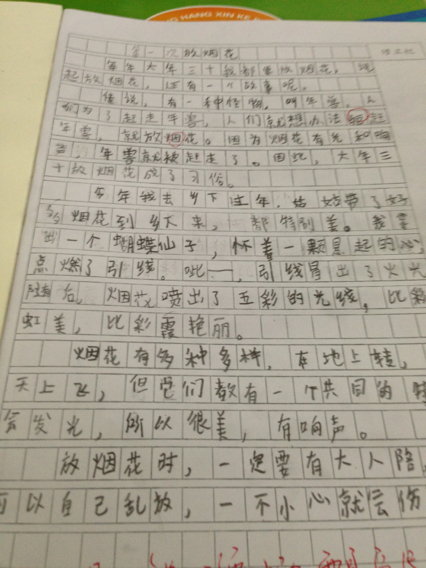 HANG XIN KE
第一次放烟花
每年大年三十我都要放烟花，说
起放烟花，还有一个故事呢。
传说，有一种怪物，叫年兽，人
们为了赶走年兽，人们就想办法
年兽，就放烟花。因为烟花有光和响
声，年兽就被赶走了。因此，大年三
十放烟花成了习俗。
今年我去乡下过年，姑姑带了好
多烟花到乡下来，都特别美。我拿
出一个蝴蝶仙子，怀着一颗激起的心
点燃了引线。呲一，引线冒出了火光
随后，烟花喷出了五彩的光线，比彩
虹美，比彩霞艳丽。
烟花有多种多样，在地上转，
天上飞，但它们都有一个共同的特
会发光，所以很美，有响声。
放烟花时，一定要有大人陪
可以自己乱放，一不小心就会伤